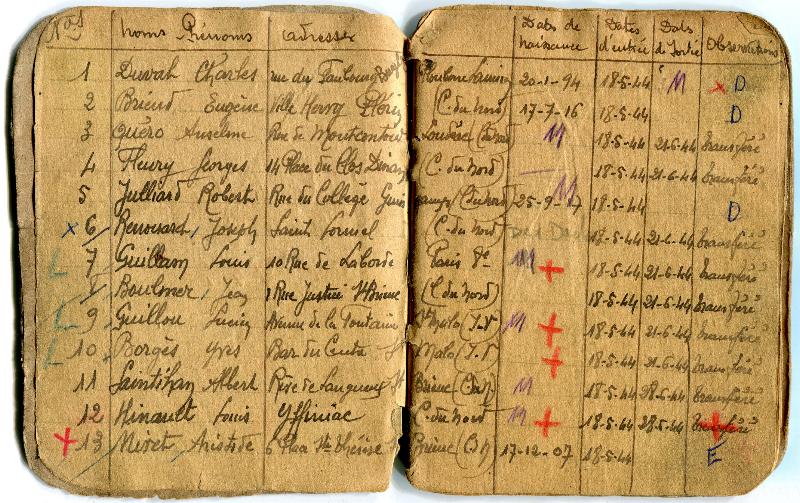 Nos Noms Prénoms adresses Dates de naissance Dates d'entrée Dats d Sortie Observations
1 Duval Charles rue du Faubourg 20-1-94 18-5-44 M x D
2 Briend Eugène Ville Hervy (C. du Nord) 17-7-16 18-5-44 D
3 Quéro Anselme Rue de Moncontour Loudéac M 18-5-44 21-6-44 transféré
4 Fleury Georges 14 Place du Clos Dinan (C. du Nord) 18-5-44 21-6-44 transféré
5 Julliard Robert Rue du Collège Guin gamp (C du nord) M 25-9- 18-5-44 D
x 6 Renouard, Joseph Saint Lormel (C. du Nord) 18-5-44 21-6-44 transféré
7 Guillam Louis 10 Rue de Laborde Paris 8e M + 18-5-44 21-6-44 transféré
Jean 1 Rue Justice St Brieuc (C du nord) 18-5-44 21-6-44 transféré
9 Guillou Lucien Avenue de la Fontaine St Malo (I.V) M + 18-5-44 21-6-44 transféré
10 Borgès Yves Bar du Centre St Malo (I.V) + 18-5-44 21-6-44 transféré
11 Albert St Brieuc M 18-5-44 28-5-44 transféré
12 Hinault Louis Yffiniac C. du nord M + 18-5-44 28-5-44 transféré
+ 13 Miret, Aristide 6 Place Ste Thérèse St Brieuc 17-12-07 18-5-44 E